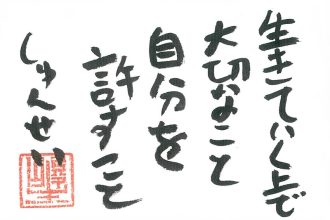 生きていく上で
大切なこと
自分を
許すこと
しゅんせい